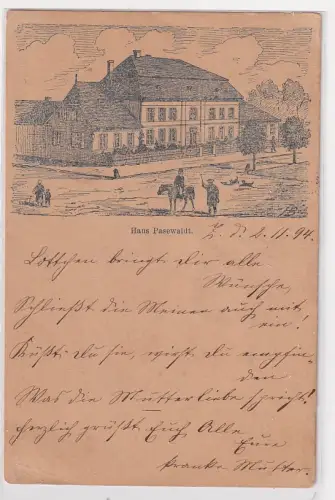 Haus Pasewaldt.
Z. d. 2. 11. 94.
Lottchen bringt Dir alle
Wünsche,
Schließt die Meinen auch mit
ein!
Küßt Du sie, wirst Du empfin-
den
Was die Mutterliebe spricht!
Herzlich grüßt Euch Alle
Eure
kranke Mutter.